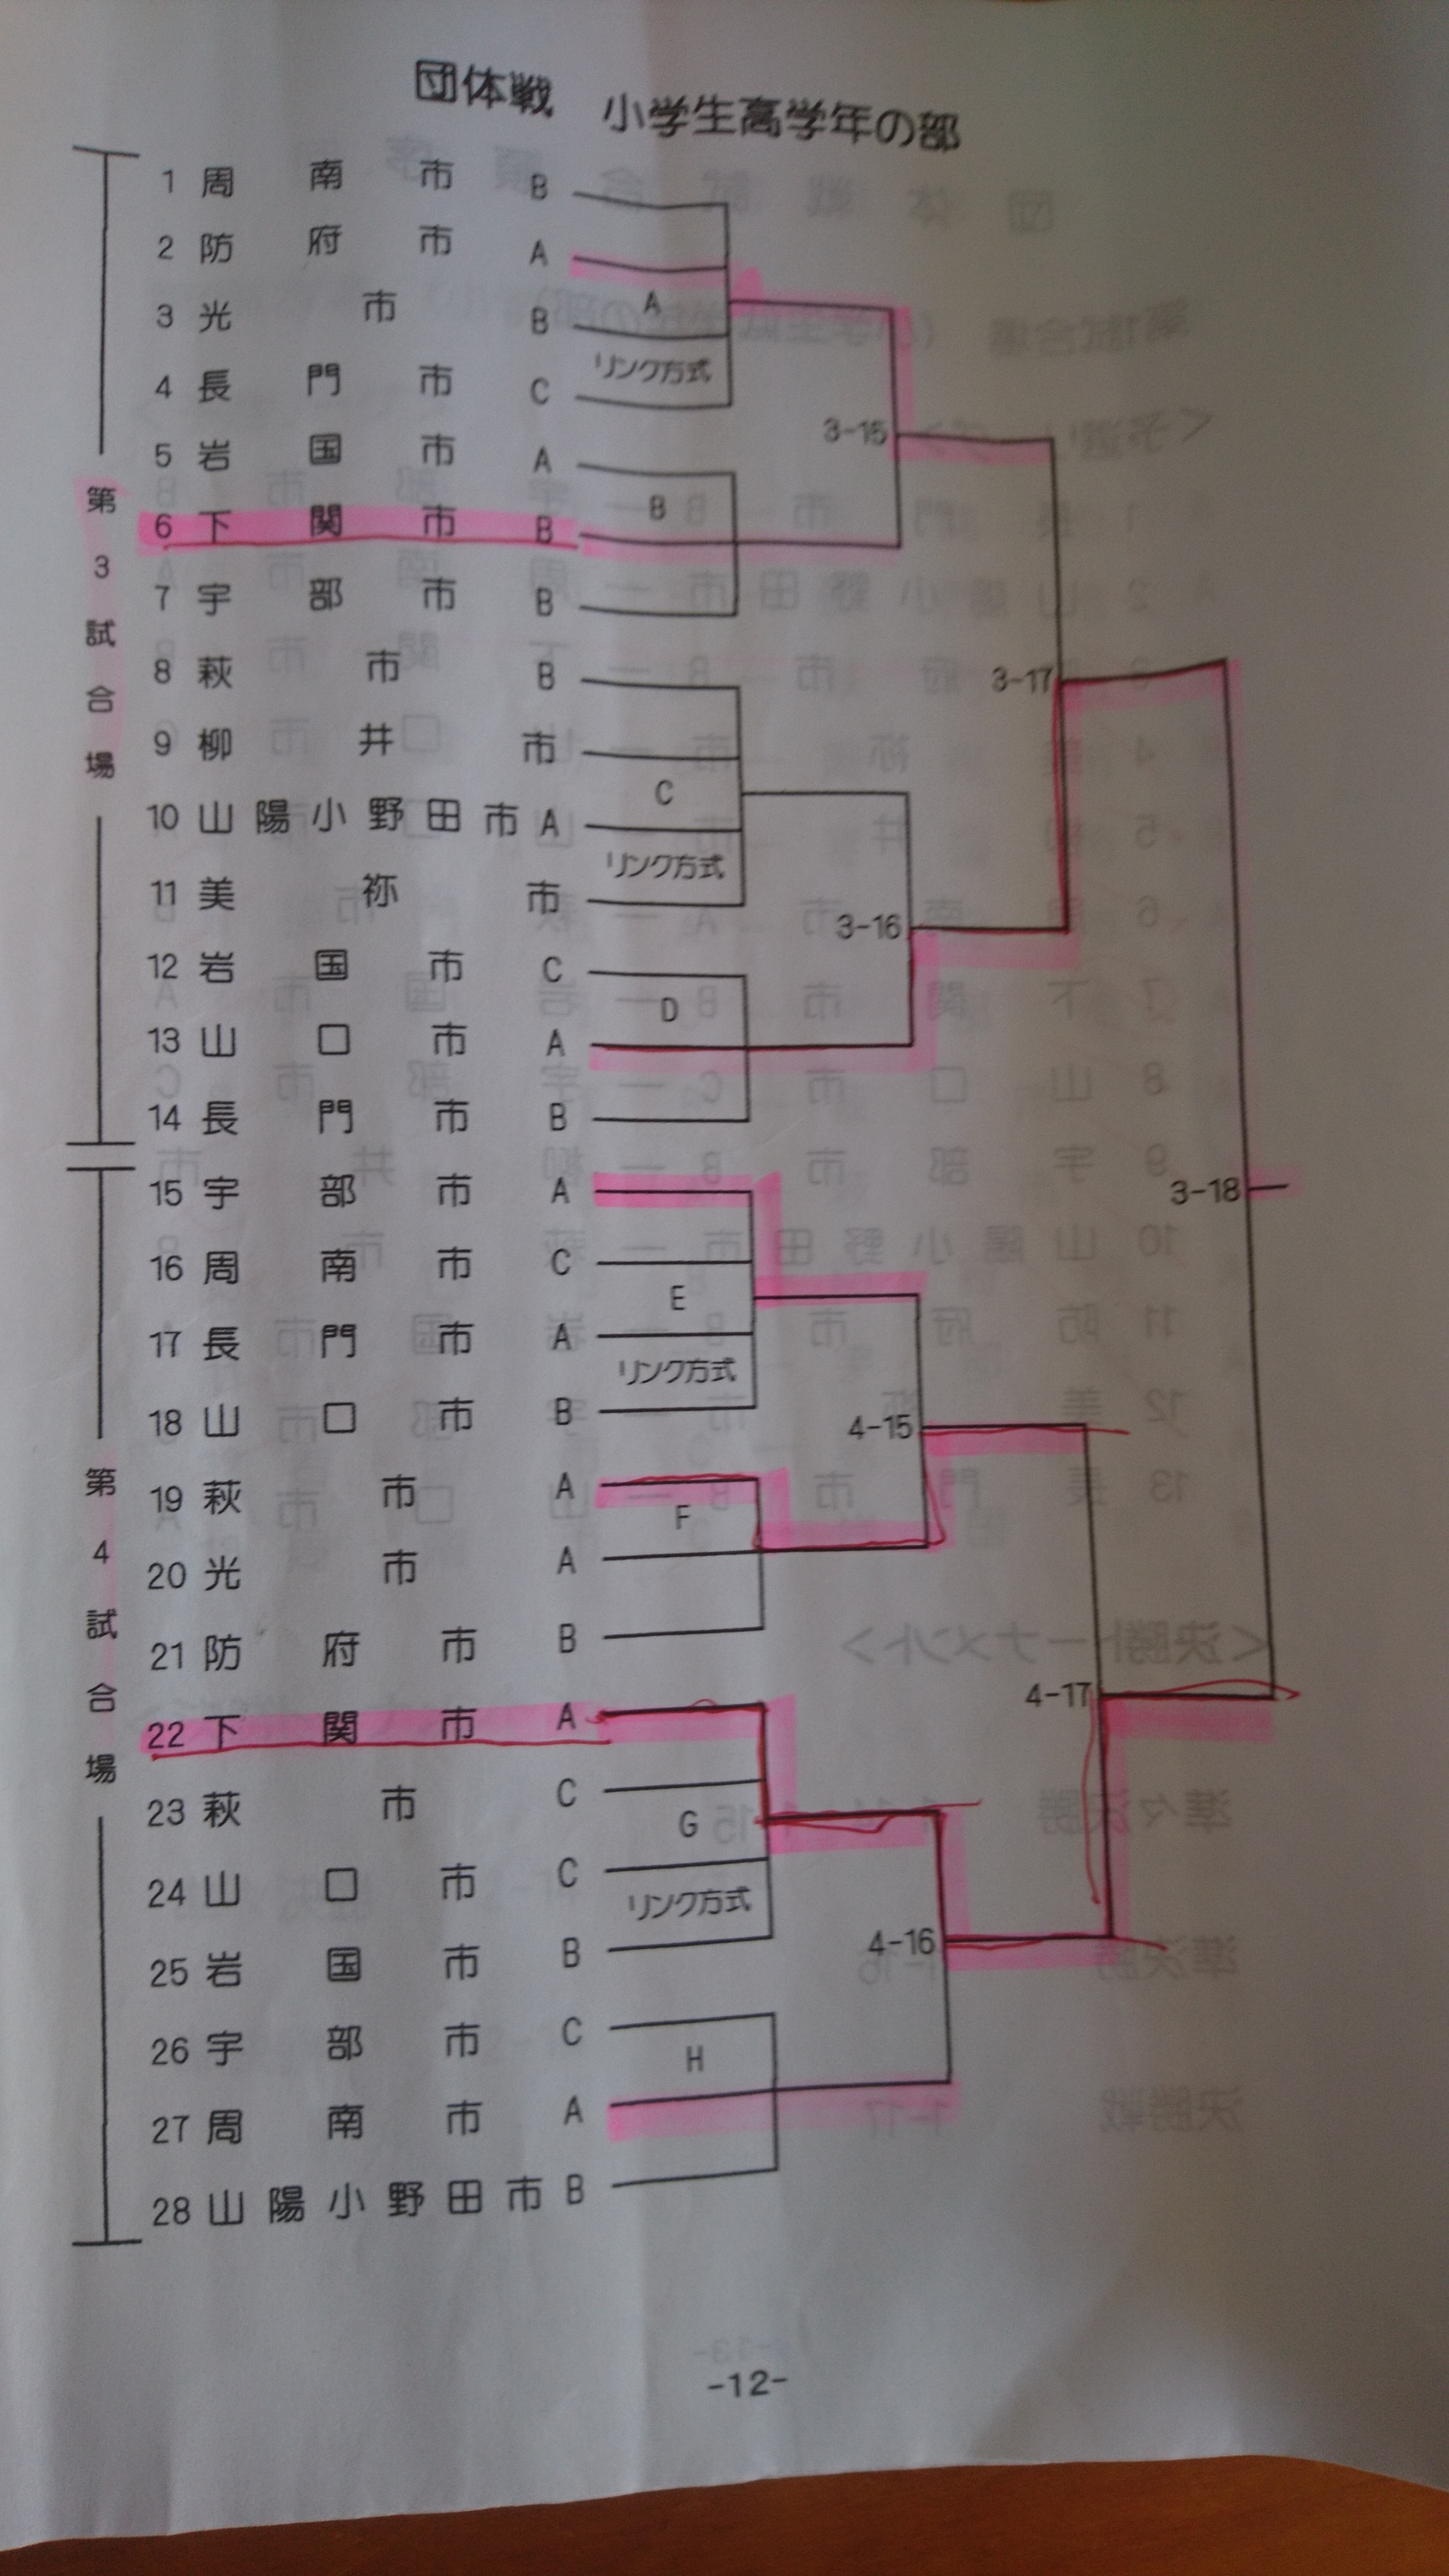 団体戦　小学生高学年の部
1 周南市 B
2 防府市 A
3 光市 B
4 長門市 C
5 岩国市 A
6 下関市 B
7 宇部市 B
8 萩市 B
9 柳井市
10 山陽小野田市 A
11 美祢市
12 岩国市 C
13 山口市 A
14 長門市 B
15 宇部市 A
16 周南市 C
17 長門市 A
18 山口市 B
19 萩市 A
20 光市 A
21 防府市 B
22 下関市 A
23 萩市 C
24 山口市 C
25 岩国市 B
26 宇部市 C
27 周南市 A
28 山陽小野田市 B
第3試合場
第4試合場
A
リンク方式
B
C
リンク方式
D
E
リンク方式
F
G
リンク方式
H
3-15
3-16
3-17
3-18
4-15
4-16
4-17
-12-